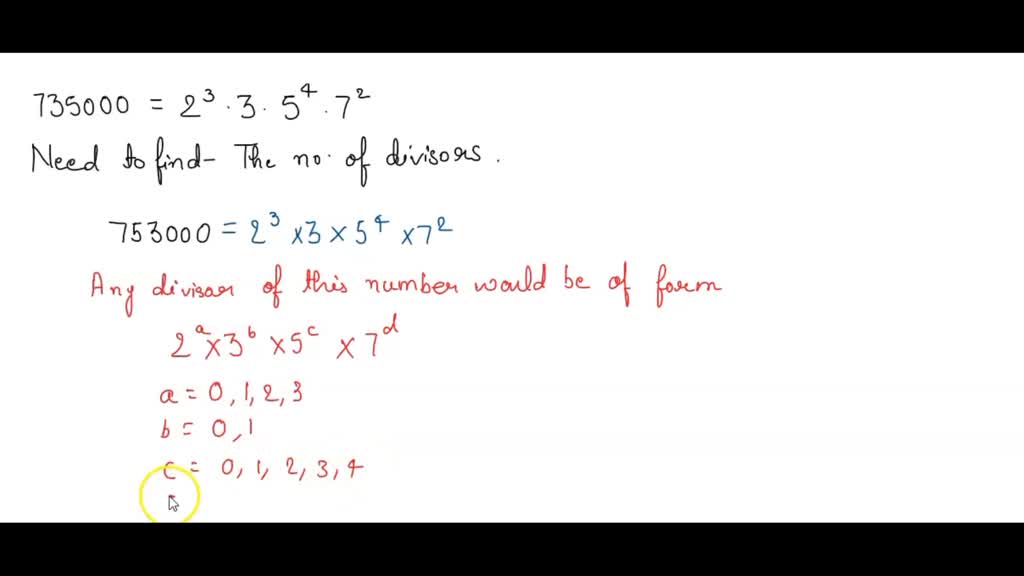 735000 = 2³ · 3 · 5⁴ · 7²
Need to find - The no. of divisors.
753000 = 2³ × 3 × 5⁴ × 7²
Any divisor of this number would be of form
2ᵃ × 3ᵇ × 5ᶜ × 7ᵈ
a = 0, 1, 2, 3
b = 0, 1
c = 0, 1, 2, 3, 4